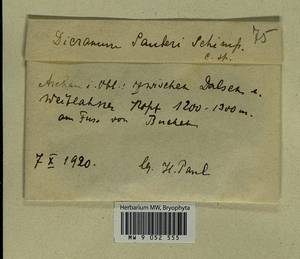 75
Dicranum Sauteri Schimp.
c. sp.
Aschau i. Obb.: zwischen Dalsen u.
Weitlahner Kopf 1200-1300 m.
am Fuss von Buchen
7 X 1920. lg. H. Paul
Herbarium MW, Bryophyta
MW 9 052 555